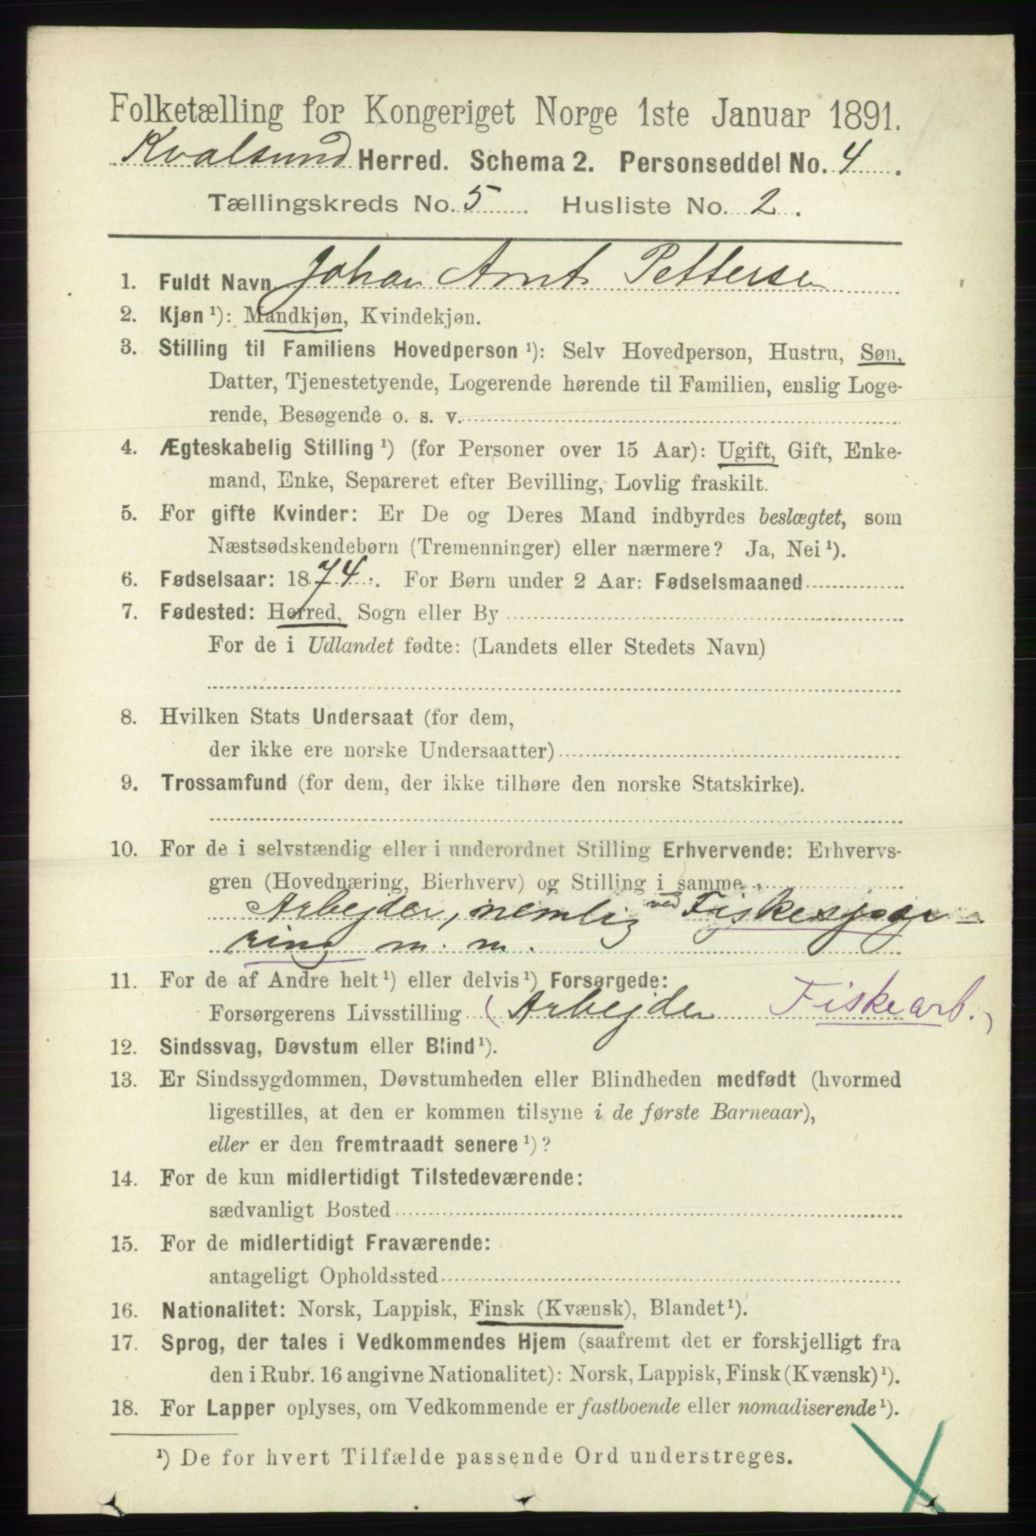 Folketælling for Kongeriget Norge 1ste Januar 1891.
Kvalsund Herred. Schema 2. Personseddel No. 4.
Tællingskreds No. 5 Husliste No. 2.
1. Fuldt Navn Johan Arnt Pettersen
2. Kjøn ¹): Mandkjøn, Kvindekjøn.
3. Stilling til Familiens Hovedperson ¹): Selv Hovedperson, Hustru, Søn,
Datter, Tjenestetyende, Logerende hørende til Familien, enslig Loge-
rende, Besøgende o. s. v.
4. Ægteskabelig Stilling ¹) (for Personer over 15 Aar): Ugift, Gift, Enke-
mand, Enke, Separeret efter Bevilling, Lovlig fraskilt.
5. For gifte Kvinder: Er De og Deres Mand indbyrdes beslægtet, som
Næstsødskendebørn (Tremenninger) eller nærmere? Ja, Nei ¹).
6. Fødselsaar: 1874. For Børn under 2 Aar: Fødselsmaaned
7. Fødested: Herred, Sogn eller By
For de i Udlandet fødte: (Landets eller Stedets Navn)
8. Hvilken Stats Undersaat (for dem,
der ikke ere norske Undersaatter)
9. Trossamfund (for dem, der ikke tilhøre den norske Statskirke).
10. For de i selvstændig eller i underordnet Stilling Erhvervende: Erhvervs-
gren (Hovednæring, Bierhverv) og Stilling i samme
Arbejder, nemlig ved Fiskesjøge
ring m. m.
11. For de af Andre helt ¹) eller delvis ¹) Forsørgede:
Forsørgerens Livsstilling (Arbejder Fiskearb.)
12. Sindssvag, Døvstum eller Blind ¹).
13. Er Sindssygdommen, Døvstumheden eller Blindheden medfødt (hvormed
ligestilles, at den er kommen tilsyne i de første Barneaar),
eller er den fremtraadt senere ¹)?
14. For de kun midlertidigt Tilstedeværende:
sædvanligt Bosted
15. For de midlertidigt Fraværende:
antageligt Opholdssted
16. Nationalitet: Norsk, Lappisk, Finsk (Kvænsk), Blandet ¹).
17. Sprog, der tales i Vedkommendes Hjem (saafremt det er forskjelligt fra
den i Rubr. 16 angivne Nationalitet): Norsk, Lappisk, Finsk (Kvænsk) ¹).
18. For Lapper oplyses, om Vedkommende er fastboende eller nomadiserende ¹).
¹) De for hvert Tilfælde passende Ord understreges.